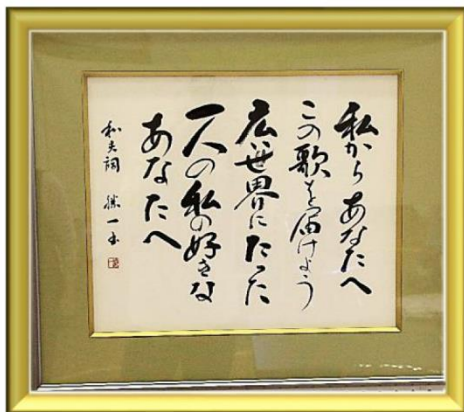 私からあなたへ
この歌を届けよう
広い世界にたった
一人の私の好きな
あなたへ
和夫詞 勝一書